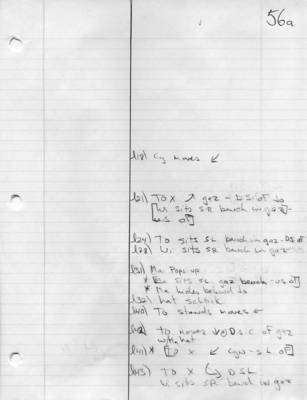 56a
118) Cy moves ↙
121) TO X ↗ gaz - DS of Jo
[Wi sits SR bench in gaz -
US of]
124) To sits SL bench in gaz - DS of
128) Wi sits SR bench in gaz
131) Ma: Pops up
* sits SL gaz bench - US of]
* Ma hides behind Jo
132) hat schtick
140) To stands moves ←
To moves DSC of gaz
w/ hat
* [ X ↙ Cyw - SL of]
143) To X DSL
Wi sits SR bench in gaz